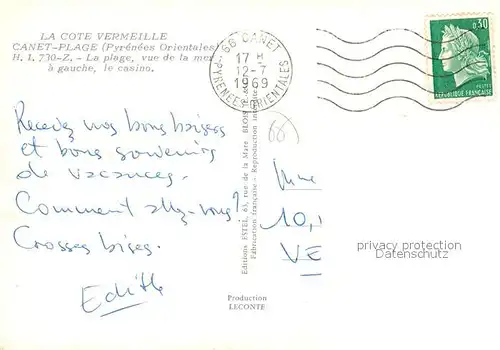 LA COTE VERMEILLE
CANET-PLAGE (Pyrénées Orientales)
H. I. 730-Z. - La plage, vue de la mer
à gauche, le casino.
66 CANET
17 H
12-7
1969
PYRENEES-ORIENTALES
0,30
POSTES
REPUBLIQUE FRANCAISE
Recevez nos bons baisers
et bons souvenirs
de vacances.
Comment allez-vous?
Grosses bises.
Edith
66
Editions ESTEL, 63, rue de la Mare BLOIS
Fabrication française - Reproduction
Production
LECONTE
Mme
10,
VE
privacy protection
Datenschutz